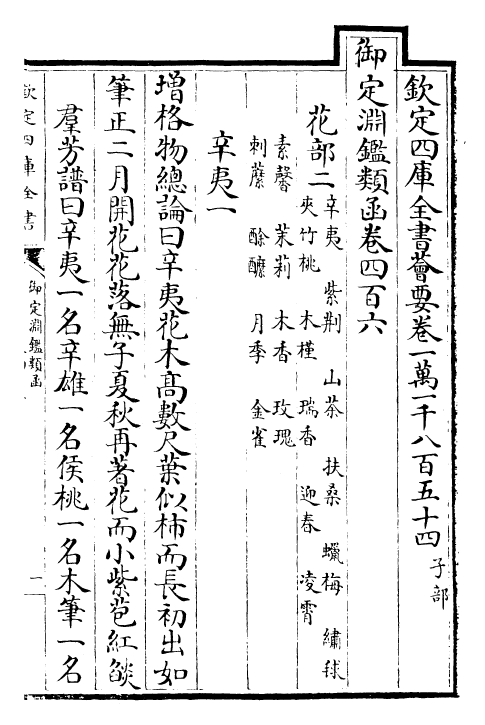 欽定四庫全書薈要卷一萬一千八百五十四 子部
御定淵鑑類函卷四百六
花部二 辛夷 紫荆 山茶 扶桑 蠟梅 繡毬
夾竹桃 木槿 瑞香 迎春 凌霄
素馨 茉莉 木香 玫瑰
刺蘼 酴醿 月季 金雀
辛夷一
增格物總論曰辛夷花木髙數尺葉似柿而長初出如
筆正二月開花花落無子夏秋再著花而小紫苞紅燄
羣芳譜曰辛夷一名辛雉一名侯桃一名木筆一名
欽定四庫全書
御定淵鑑類函
一